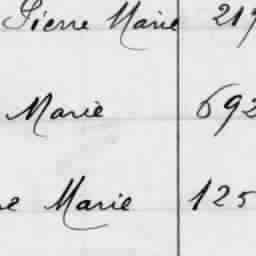 Pierre Marie 219
Marie 692
Marie 125